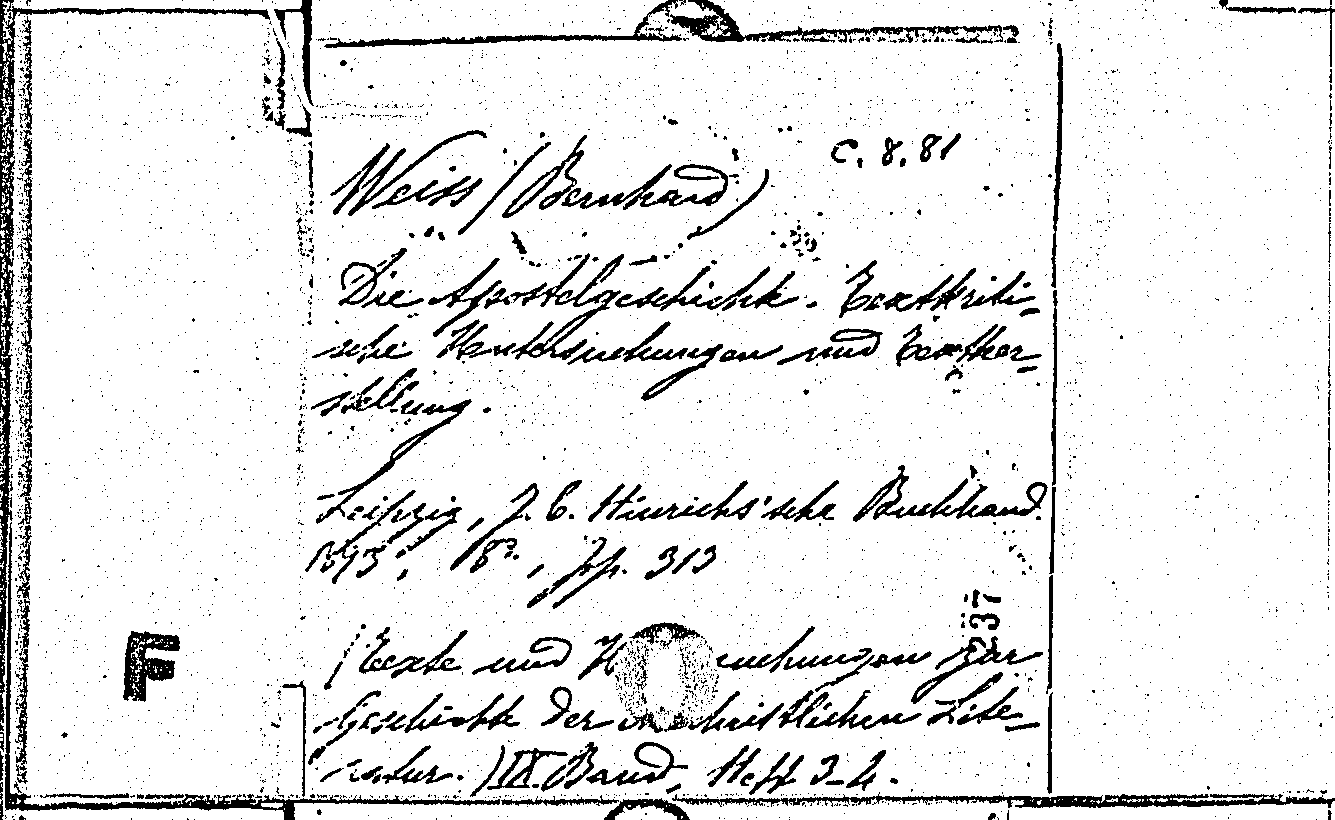 C. 8. 81
Weiss (Bernhard)
Die Apostelgeschichte. Textkriti-
sche Untersuchungen und Texther-
stellung.
Leipzig, J. C. Hinrichs'sche Buchhand.
1893, 8º, pp. 313
237
(Texte und U uchungen zur
Geschichte der christlichen Lite-
ratur.) IX Band, Heft 3-4.
F